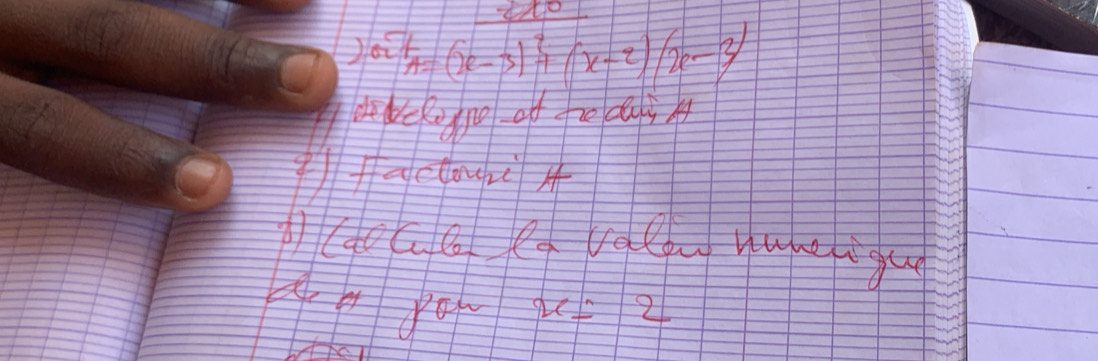 Exo
Soit A = (x-3)² + (x-2)(x-3)
1) developpe et reduis A
2) Factorise A
3) Calcule la valeur numerique
de A pour x = 2